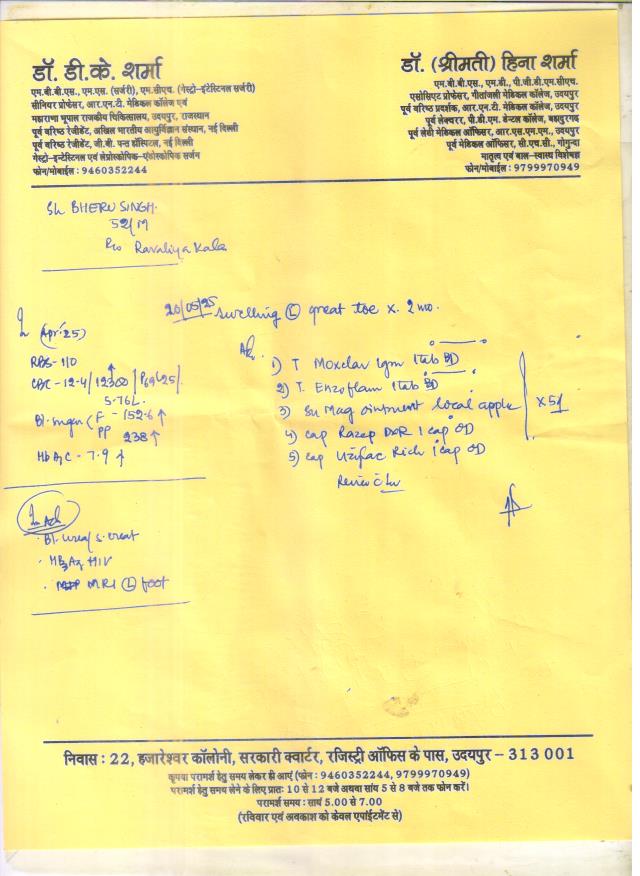 डॉ. डी.के. शर्मा
एम.बी.बी.एस., एम.एस. (सर्जरी), एम.सीएच. (गेस्ट्रो-इंटेस्टिनल सर्जरी)
सीनियर प्रोफेसर, आर.एन.टी. मेडिकल कॉलेज एवं
महाराणा भूपाल राजकीय चिकित्सालय, उदयपुर, राजस्थान
पूर्व वरिष्ठ रेजीडेंट, अखिल भारतीय आयुर्विज्ञान संस्थान, नई दिल्ली
पूर्व वरिष्ठ रेजीडेंट, जी.बी. पन्त हॉस्पिटल, नई दिल्ली
गेस्ट्रो-इन्टेस्टिनल एवं लेप्रोस्कोपिक-एंडोस्कोपिक सर्जन
फोन/मोबाईल : 9460352244
डॉ. (श्रीमती) हिना शर्मा
एम.बी.बी.एस., एम.डी., पी.जी.डी.एम.सीएच.
एसोसिएट प्रोफेसर, गीतांजली मेडिकल कॉलेज, उदयपुर
पूर्व वरिष्ठ प्रदर्शक, आर.एन.टी. मेडिकल कॉलेज, उदयपुर
पूर्व लेक्चरर, पी.डी.एम. डेन्टल कॉलेज, बहादुरगढ़
पूर्व लेडी मेडिकल ऑफिसर, आर.एस.एम.एम., उदयपुर
पूर्व मेडिकल ऑफिसर, सी.एच.सी., गोगुन्दा
मातृत्व एवं बाल-स्वास्थ्य विशेषज्ञ
फोन/मोबाईल : 9799970949
Sh BHERU SINGH
52/M
R/o Ravaliya Kala
20/05/25 swelling (L) great toe x 2 mo.
(Apr.25)
RBS - 110
CBC - 12.4 / 12300 ↑ / P69 L25 /
5.76L
Bl. sugar ( F - 152.6 ↑
PP 238 ↑
HbA1C - 7.9 ↑
1) T Moxclav 1gm 1 tab BD
2) T. Enzoflam 1 tab BD
3) Su Mag ointment local applc
4) cap Razep DSR 1 cap OD
5) cap Rich 1 cap OD
Review
Adv
Bl. urea / s. creat
HIV
MRI (L) foot
निवास : 22, हजारेश्वर कॉलोनी, सरकारी क्वार्टर, रजिस्ट्री ऑफिस के पास, उदयपुर – 313 001
कृपया परामर्श हेतु समय लेकर ही आएं (फोन : 9460352244, 9799970949)
परामर्श हेतु समय लेने के लिए प्रातः 10 से 12 बजे अथवा सायं 5 से 8 बजे तक फोन करें।
परामर्श समय : सायं 5.00 से 7.00
(रविवार एवं अवकाश को केवल एपॉइंटमेंट से)